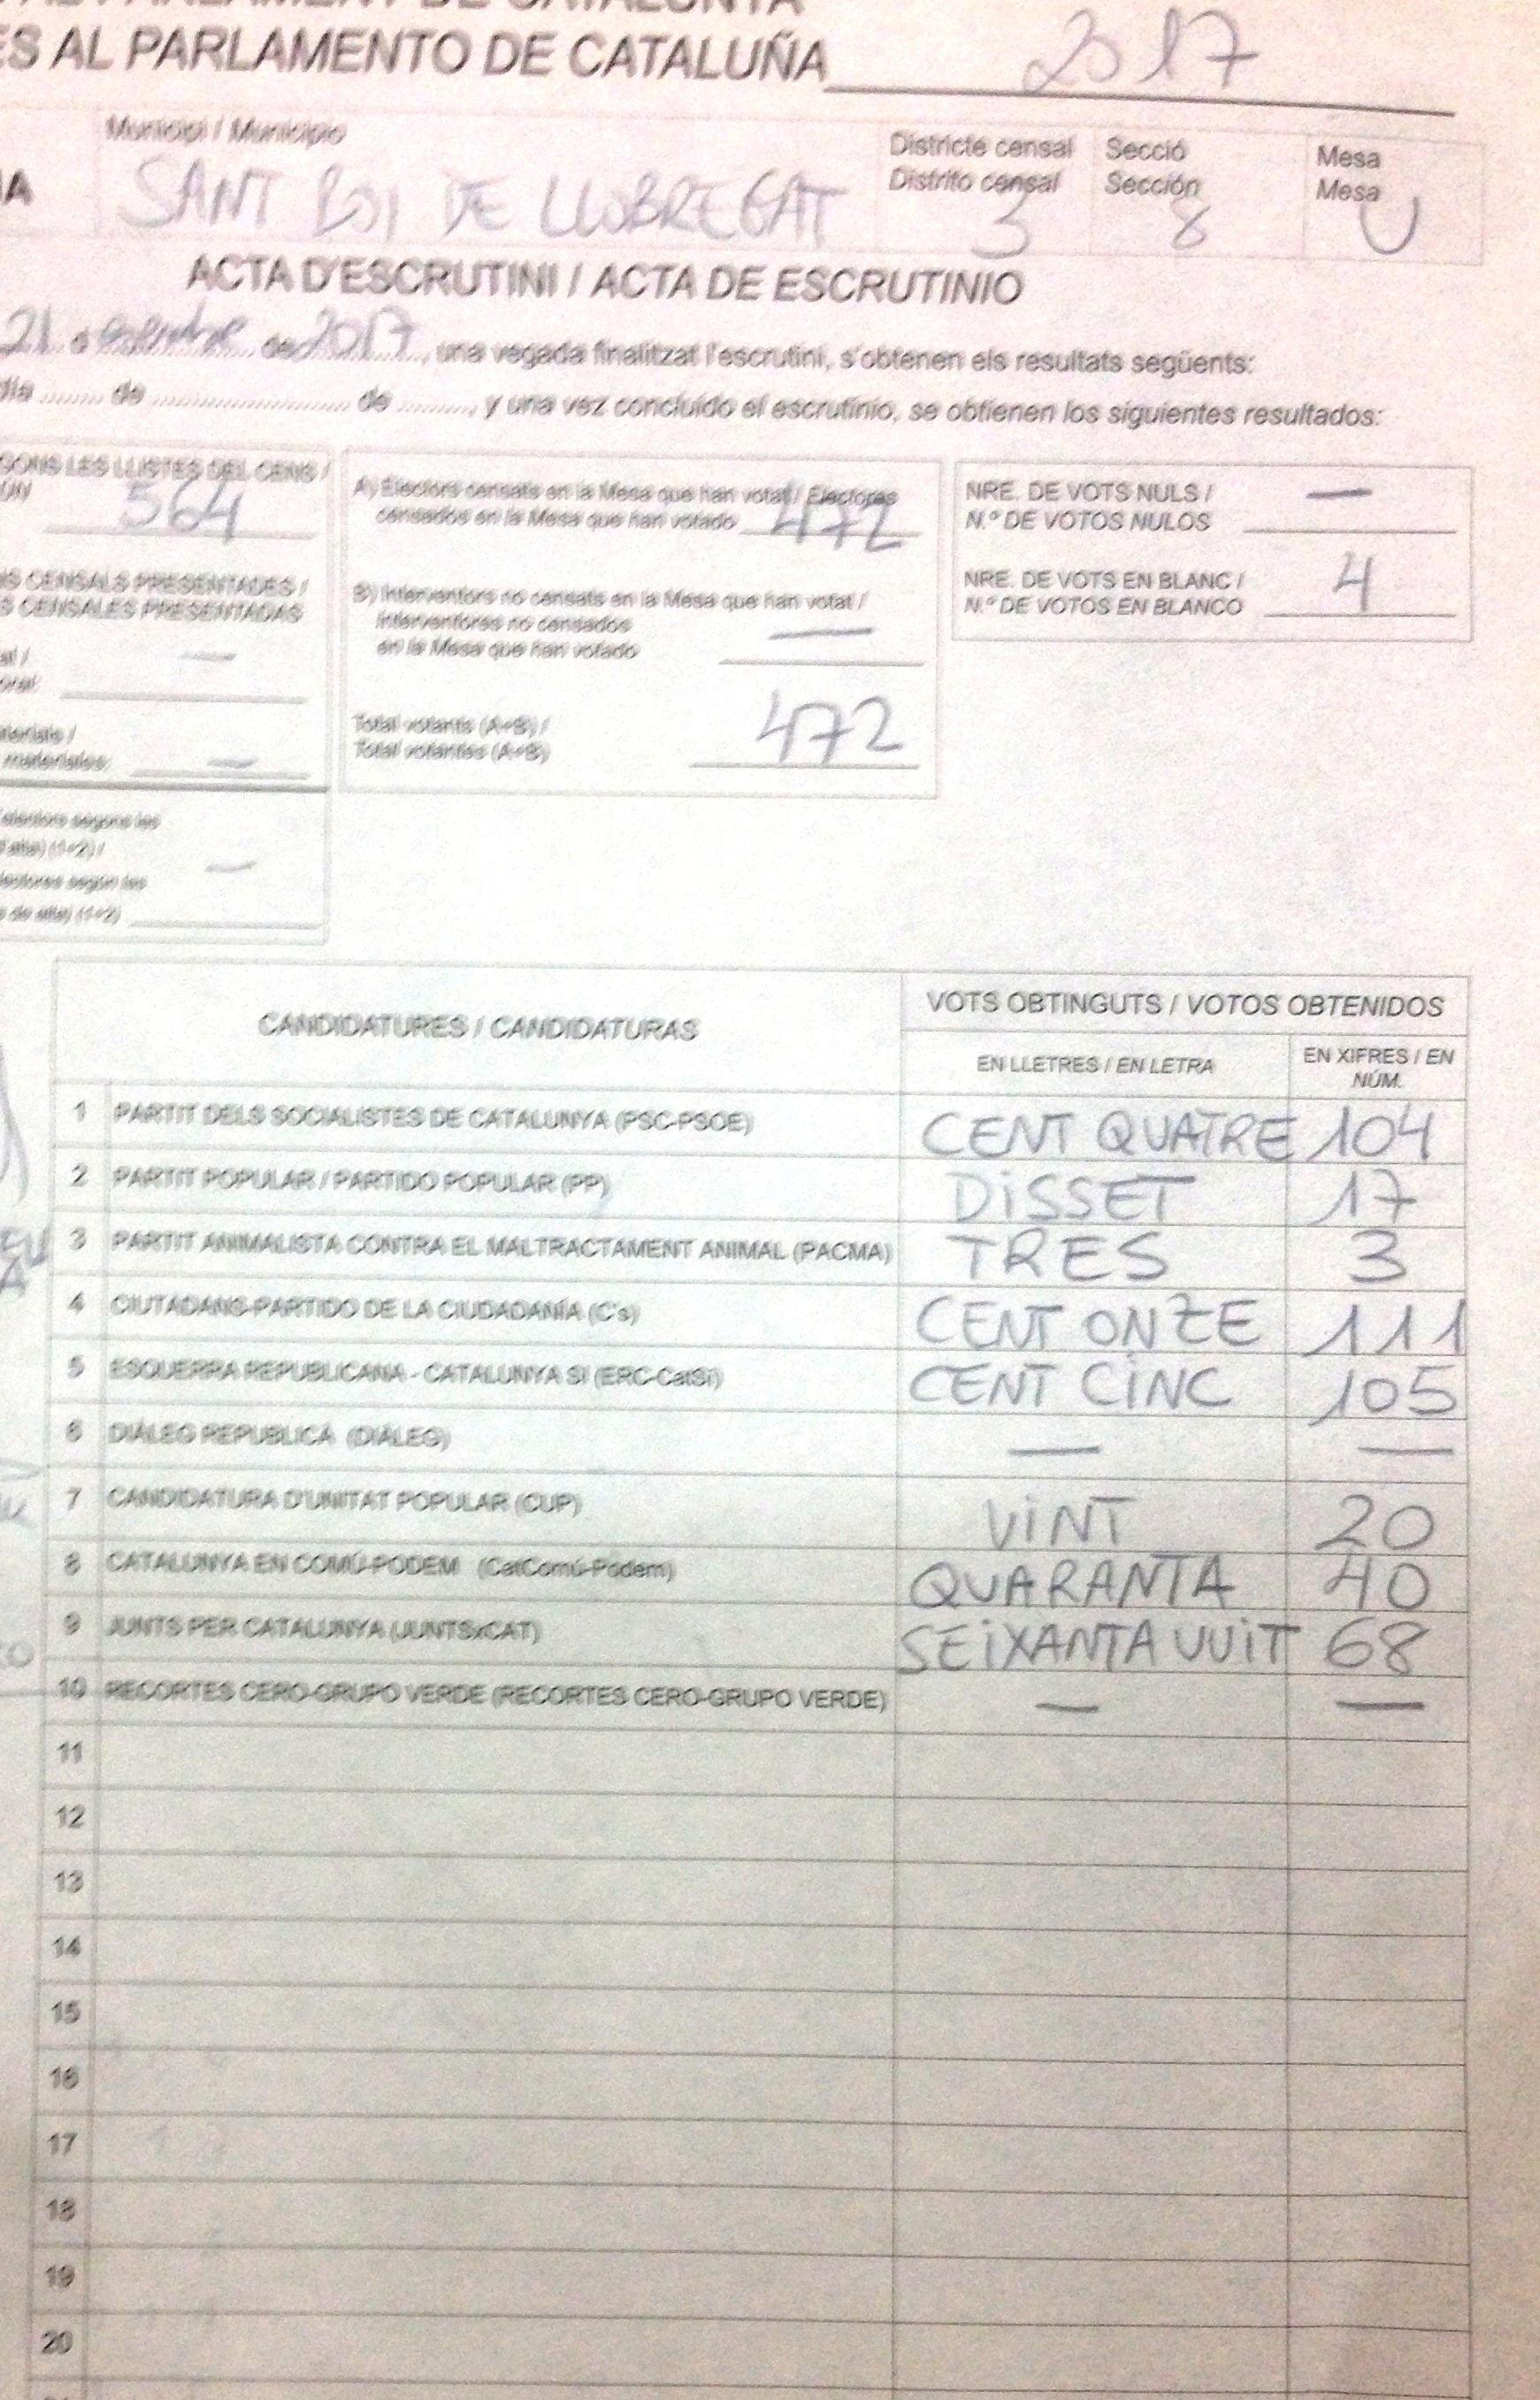 ES AL PARLAMENTO DE CATALUÑA 2017
Municipi / Municipio
SANT BOI DE LLOBREGAT
Districte censal
Distrito censal
3
Secció
Sección
8
Mesa
Mesa
U
ACTA D'ESCRUTINI / ACTA DE ESCRUTINIO
21 d desembre de 2017, una vegada finalitzat l'escrutini, s'obtenen els resultats següents:
día ........ de .................... de ........, y una vez concluido el escrutinio, se obtienen los siguientes resultados:
GONS LES LLISTES DEL CENS /
564
S CENSALS PRESENTADES /
S CENSALES PRESENTADAS
—
—
—
A) Electors censats en la Mesa que han votat / Electores
censados en la Mesa que han votado 472
B) Interventors no censats en la Mesa que han votat /
Interventores no censados
en la Mesa que han votado —
Total votants (A+B) /
Total votantes (A+B) 472
NRE. DE VOTS NULS /
N.º DE VOTOS NULOS —
NRE. DE VOTS EN BLANC /
N.º DE VOTOS EN BLANCO 4
CANDIDATURES / CANDIDATURAS
VOTS OBTINGUTS / VOTOS OBTENIDOS
EN LLETRES / EN LETRA
EN XIFRES / EN NÚM.
1 PARTIT DELS SOCIALISTES DE CATALUNYA (PSC-PSOE) CENT QUATRE 104
2 PARTIT POPULAR / PARTIDO POPULAR (PP) DISSET 17
3 PARTIT ANIMALISTA CONTRA EL MALTRACTAMENT ANIMAL (PACMA) TRES 3
4 CIUTADANS-PARTIDO DE LA CIUDADANÍA (C's) CENT ONZE 111
5 ESQUERRA REPUBLICANA - CATALUNYA SI (ERC-CatSí) CENT CINC 105
6 DIÁLEG REPUBLICÀ (DIÀLEG) — —
7 CANDIDATURA D'UNITAT POPULAR (CUP) VINT 20
8 CATALUNYA EN COMÚ-PODEM (CatComú-Podem) QUARANTA 40
9 JUNTS PER CATALUNYA (JUNTSxCAT) SEIXANTA VUIT 68
10 RECORTES CERO-GRUPO VERDE (RECORTES CERO-GRUPO VERDE) — —
11
12
13
14
15
16
17
18
19
20